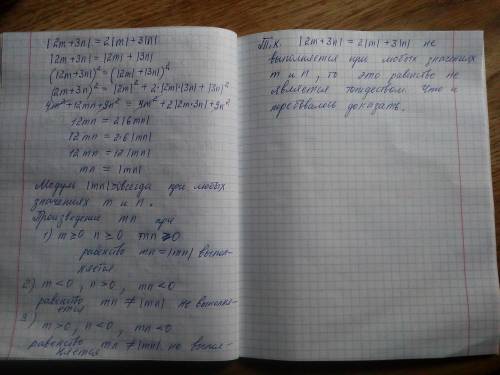 |2m+3n| = 2|m|+3|n|
|2m+3n| = |2m|+|3n|
(|2m+3n|)² = (|2m|+|3n|)²
(2m+3n)² = |2m|²+2·|2m|·|3n|+|3n|²
4m²+12mn+9n² = 4m²+2|2m·3n|+9n²
12mn = 2|6mn|
12mn = 2·6|mn|
12mn = 12|mn|
mn = |mn|
Модуль |mn|> всегда при любых
значениях m и n.
Произведение mn при
1) m ≥ 0 n ≥ 0 mn ≥ 0
равенство mn = |mn| выпол-
няется
2) m < 0, n > 0, mn < 0
равенство mn ≠ |mn| не выполня-
ется
3)
m > 0, n < 0, mn < 0
равенство mn ≠ |mn| не выпол-
няется
Т.к. |2m+3n| = 2|m|+3|n| не
выполняется при любых значениях
m и n, то это равенство не
является тождеством. Что и
требовалось доказать.